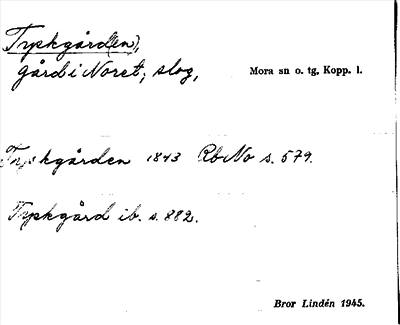 Tryskgård(en),
gård i Noret; slog,
Mora sn o. tg, Kopp. l.
Tryskgården 1843 RbNo s. 579.
Tryskgård ib. s. 882.
Bror Lindén 1945.